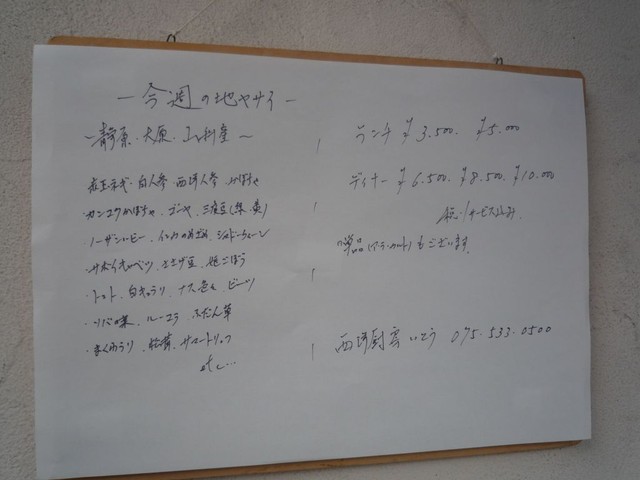 －今週の地ヤサイ－
～静原・大原・山科産～
・白人参・西洋人参・かぼちゃ
・カンコウかぼちゃ・ゴーヤ・三度豆(黒・黄)
・ノーザンルビー・シャドークイーン
・サボイキャベツ・ささげ豆・姫ごぼう
・トマト・白キュウリ・ナス色々・ビーツ
・ルーコラ・ふだん草
・まくわうり・サマートリュフ
etc...
ランチ ￥3.500. ￥5.000
ディナー ￥6.500. ￥8.500. ￥10.000
税・サービス込み.
単品(アラ・カルト)もございます.
西洋厨房いとう 075.533.0500